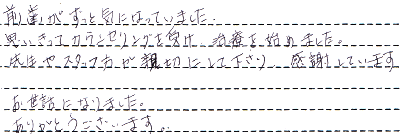 前歯がずっと気になっていました。
思いきってカウンセリングを受け、治療を始めました。
先生やスタッフ方が親切にして下さり、感謝しています
お世話になりました。
ありがとうございます。